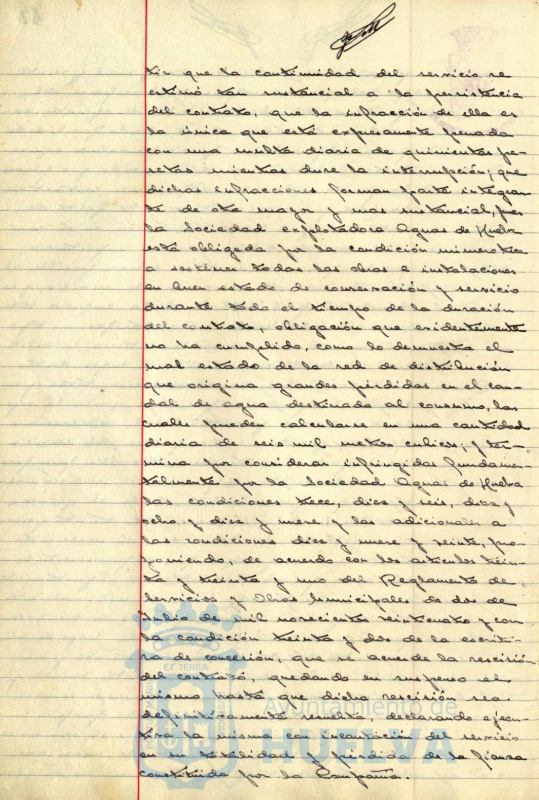 tir que la continuidad del servicio se
estimó tan sustancial a la persistencia
del contrato, que la infracción de ella es
la única que está expresamente penada
con una multa diaria de quinientas pe-
setas mientras dure la interrupción; que
dichas infracciones forman parte integran
te de otra mayor y mas sustancial, pues
la Sociedad explotadora Aguas de Huelva
está obligada por la condición número trece
a sostener todas las obras e instalaciones
en buen estado de conservación y servicio
durante todo el tiempo de la duración
del contrato, obligación que evidentemente
no ha cumplido, como lo demuestra el
mal estado de la red de distribución
que origina grandes pérdidas en el cau-
dal de agua destinada al consumo, las
cuales pueden calcularse en una cantidad
diaria de seis mil metros cúbicos; y ter-
mina por considerar infringidas fundamen-
talmente por la Sociedad Aguas de Huelva
las condiciones trece, diez y seis, diez y
ocho y diez y nueve y las adicionales a
las condiciones diez y nueve y veinte, pro-
poniendo, de acuerdo con los artículos trein-
ta y treinta y uno del Reglamento de
Servicios y Obras Municipales de dos de
Julio de mil novecientos veinticuatro y con
la condición treinta y dos de la escritu-
ra de concesión, que se acuerde la rescisión
del contrato, quedando en suspenso el
mismo hasta que dicha rescisión sea
definitivamente resuelta, declarando ejecu-
tiva la misma con incautación del servicio
en su totalidad y pérdida de la fianza
constituida por la Compañia.
ET TERRÆ
Ayuntamiento de
HUELVA